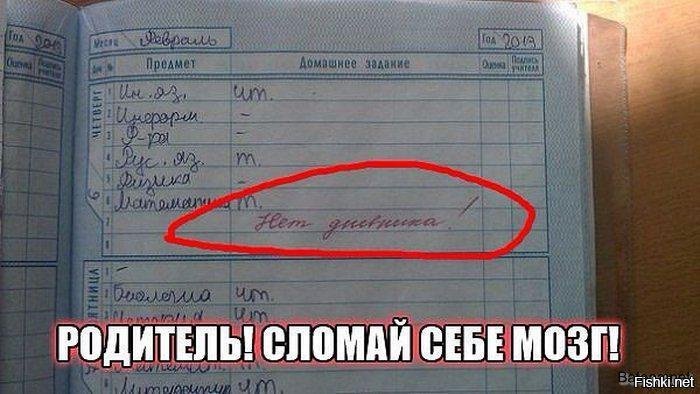 Год 2013 Месяц Февраль Год 2013
Оценка Подпись учителя Дни № Предмет Домашнее задание Оценка Подпись учителя
ЧЕТВЕРГ
6
1 Ин. яз. чт.
2 Информ –
3 Ф-ра –
4 Рус. яз. т.
5 Физика –
6 Математика т.
7 Нет дневника!
8
ПЯТНИЦА
1 –
2 Биология чт.
3 История чт.
РОДИТЕЛЬ! СЛОМАЙ СЕБЕ МОЗГ!
Литература чт.
Fishki.net